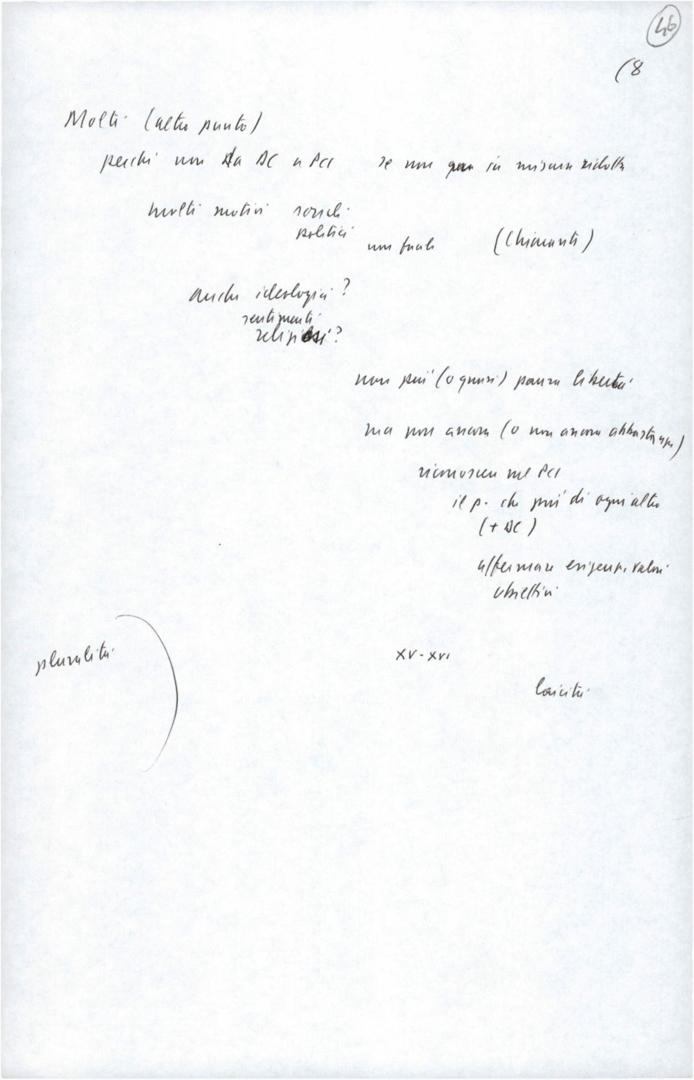 46
(8
Molti (altro punto)
perché non da DC a PCI se non in misura ridotta
molti motivi sociali
politici
(Chiaranti)
anche ideologici?
sentimenti
religiosi?
non più (o quasi) paura libertà
ma non ancora (o non ancora abbastanza)
riconoscere nel PCI
il p. che più di ogni altro
(+ DC)
affermare esigenze, valori
obiettivi
pluralità
XV-XVI
laicità